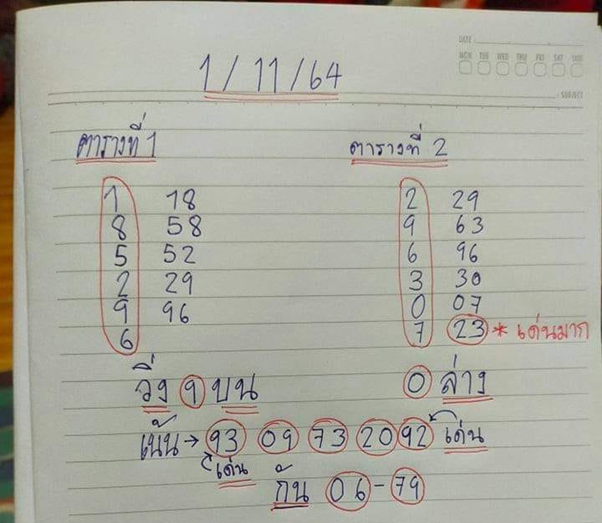 DATE
MON TUE WED THU FRI SAT SUN
SUBJECT
1/11/64
ตารางที่ 1 ตารางที่ 2
1 18 2 29
8 58 9 63
5 52 6 96
2 29 3 30
9 96 0 07
6 7 23 * เด่นมาก
วิ่ง 9 บน 0 ล่าง
เน้น → 93 09 73 20 92 เด่น
เด่น
กัน 06 - 79